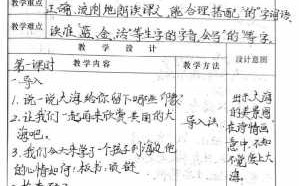 教学重点 正确、流利地朗读课文，能合理搭配"的"字词语
教学难点 读准蓝、
等生字的字音，会写"的"等字。
教 学 设 计
教学内容 教学方法 设计意图
第一课时
一、导入
1. 说一说大海给你留下哪些印象
2. 让我们一起再来欣赏美丽的大
海吧。
3. 我们今天来学一个孩子到海边他
的心情如何，板书：
导入法
出示大海
的美景图
在诗情画
意中，不知
不觉爱上大
海。